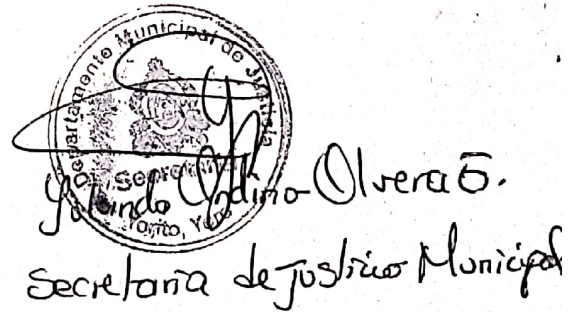 Departamento Municipal de Justicia
Secretaria
Yorito, Yoro
Yolanda Olvera O.
Secretaria de Justicia Municipal